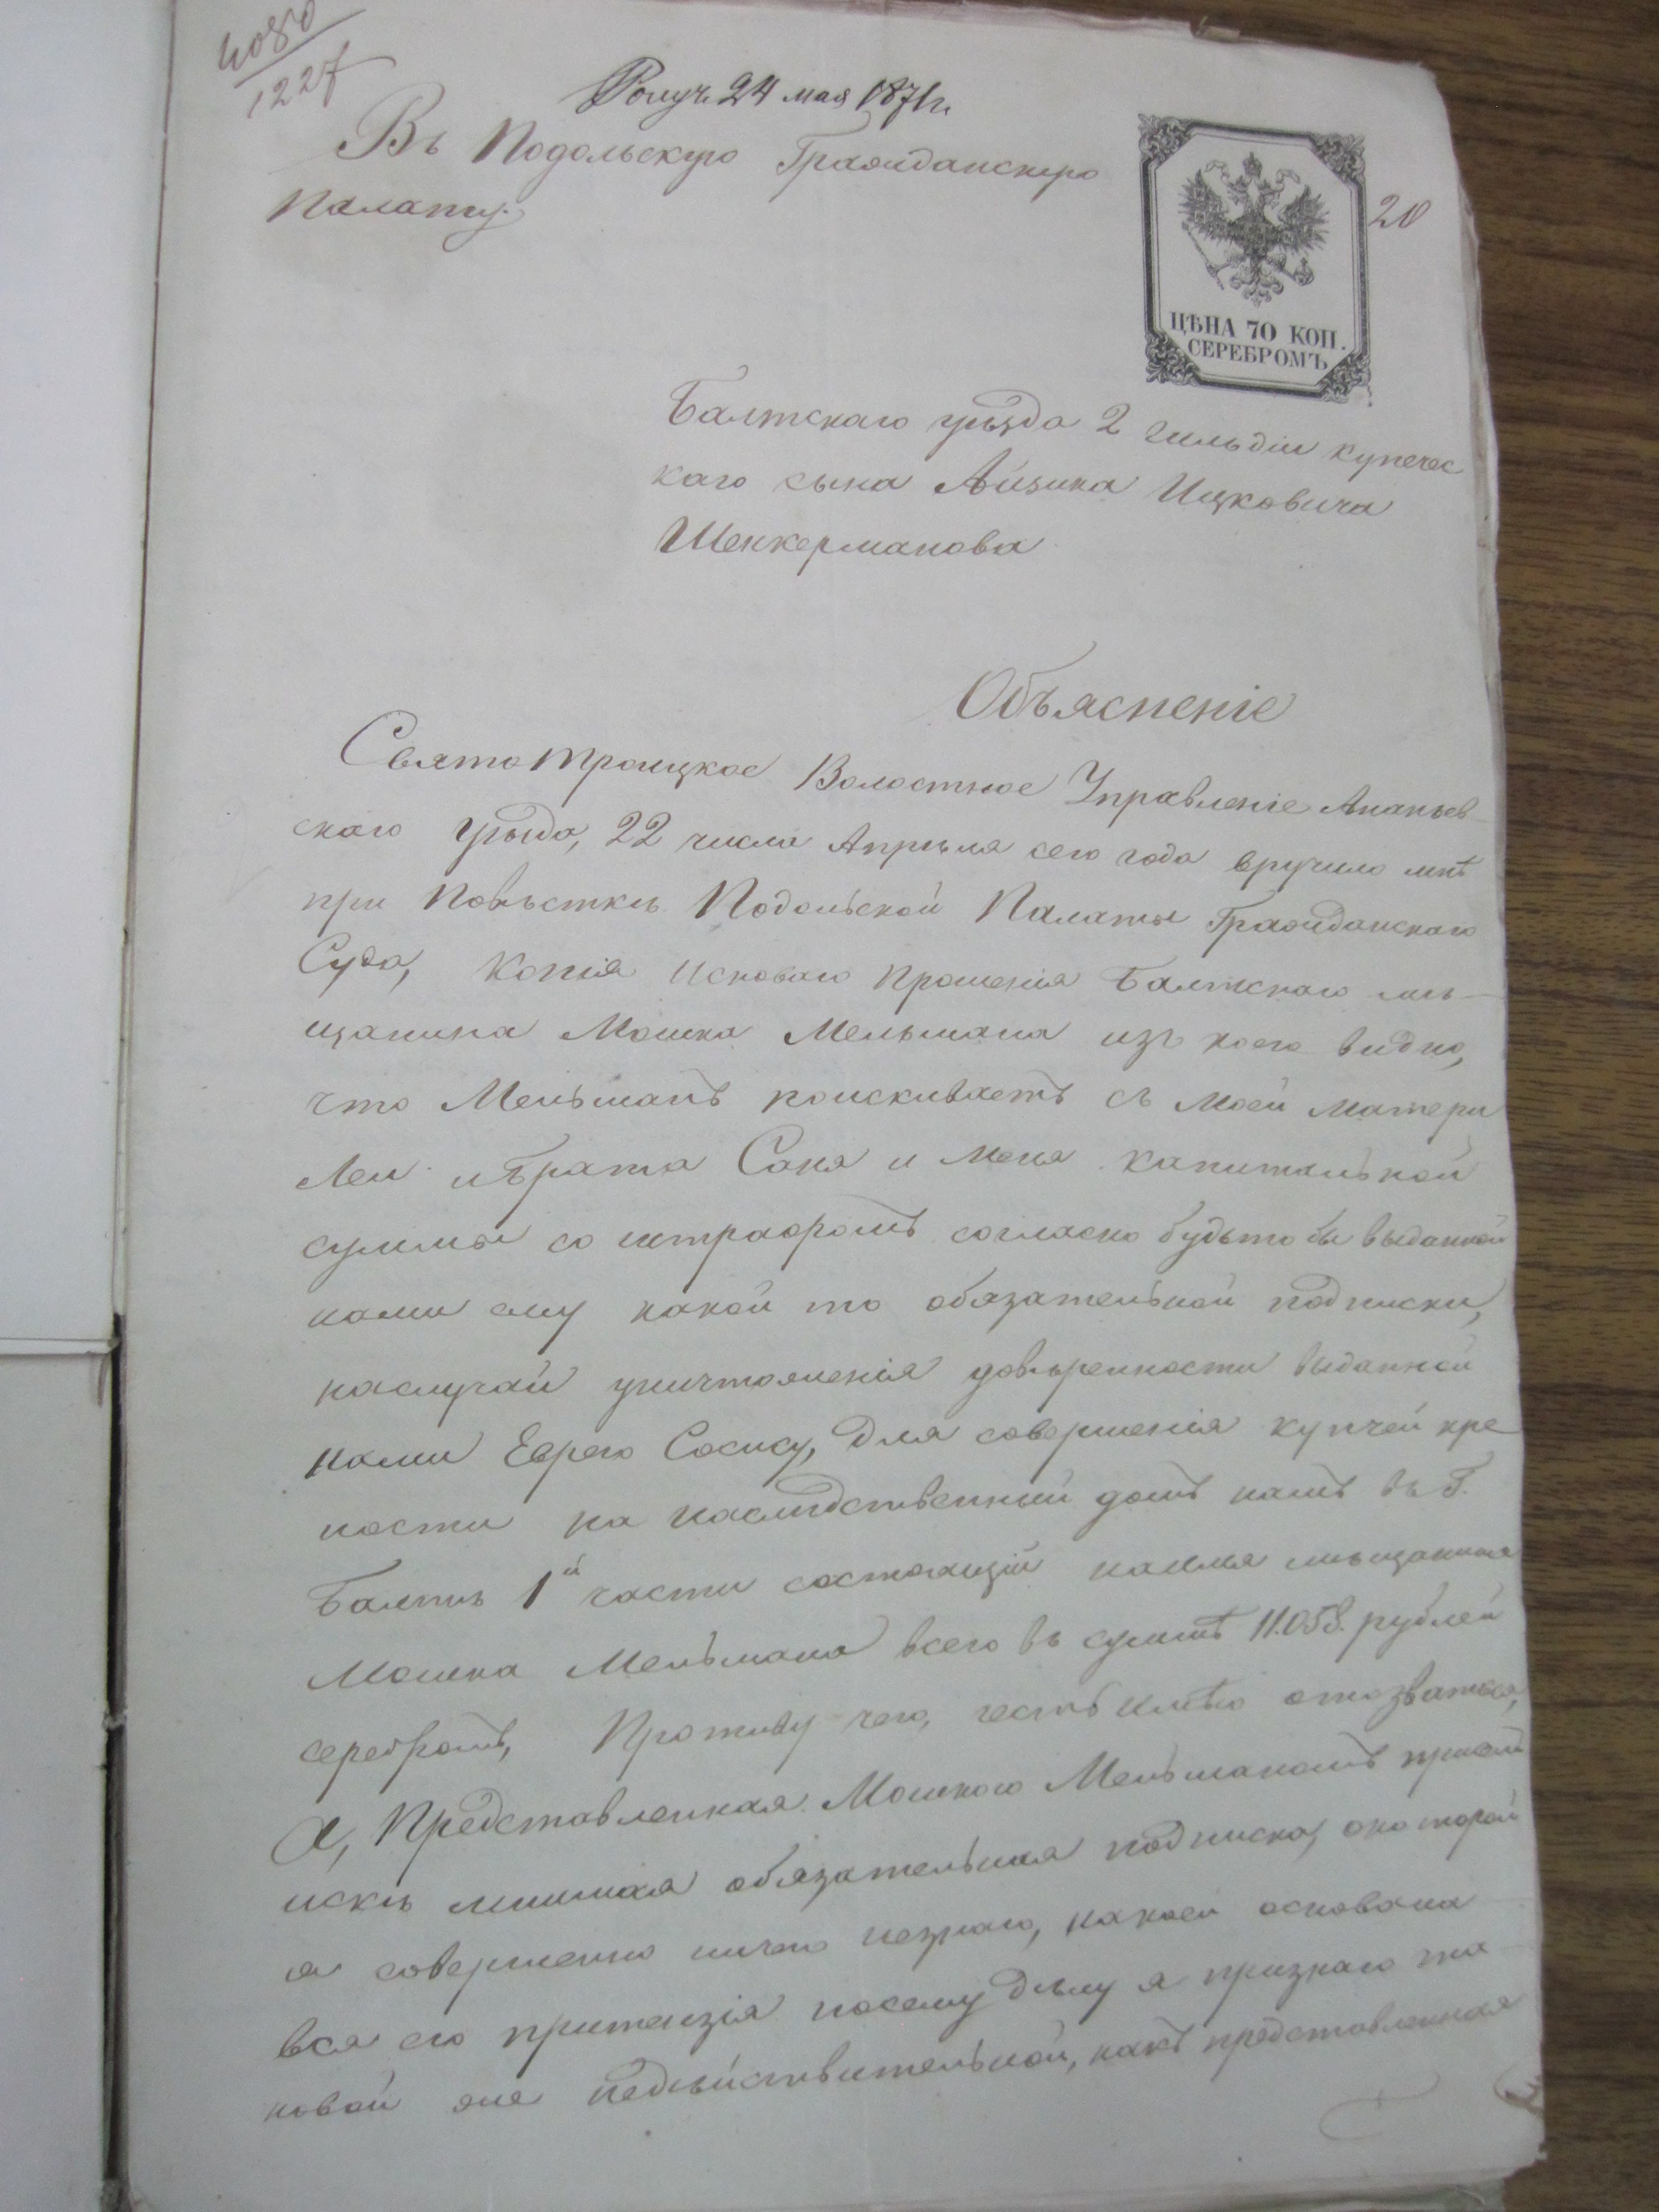 4080
1227
Получ. 24 мая 1871 г.
Въ Подольскую Гражданскую
Палату.
20
ЦѢНА 70 КОП.
СЕРЕБРОМЪ
Балтскаго уѣзда 2 гильдіи купечес
каго сына Айзика Ицковича
Шенкерманова
Объясненіе
Свято Троицкое Волостное Управленіе Ананьев-
скаго уѣзда, 22 числа Апрѣля сего года вручило мнѣ
при Повѣсткѣ Подольской Палаты Гражданскаго
Суда, Копія Исковаго Прошенія Балтскаго мѣ-
щанина Мошка Мельмана изъ коего видно,
что Мельманъ поискиваетъ съ моей матери
Леи и брата Саня и меня капитальной
суммы со штрафомъ согласно будьто бы выданной
нами ему какой то обязательной подписки,
наслучай уничтоженія довѣренности выданной
нами Еврею Сосису, для совершенія купчей крѣ
пости на наслѣдственный домъ нашъ въ Г.
Балтѣ 1й части состоящій наимя мѣщанина
Мошка Мельмана всего въ суммѣ 11.058. рублей
серебромъ, Противу чего, честь имѣю отозваться,
а, Представленная Мошкою Мельманомъ при
искѣ мнимая обязательная подписка, окоторой
я совершенно ничего незнаю, накоей основана
вся его притензія посему дѣлу я признаю та
ковой же недѣйствительной, какъ представленная